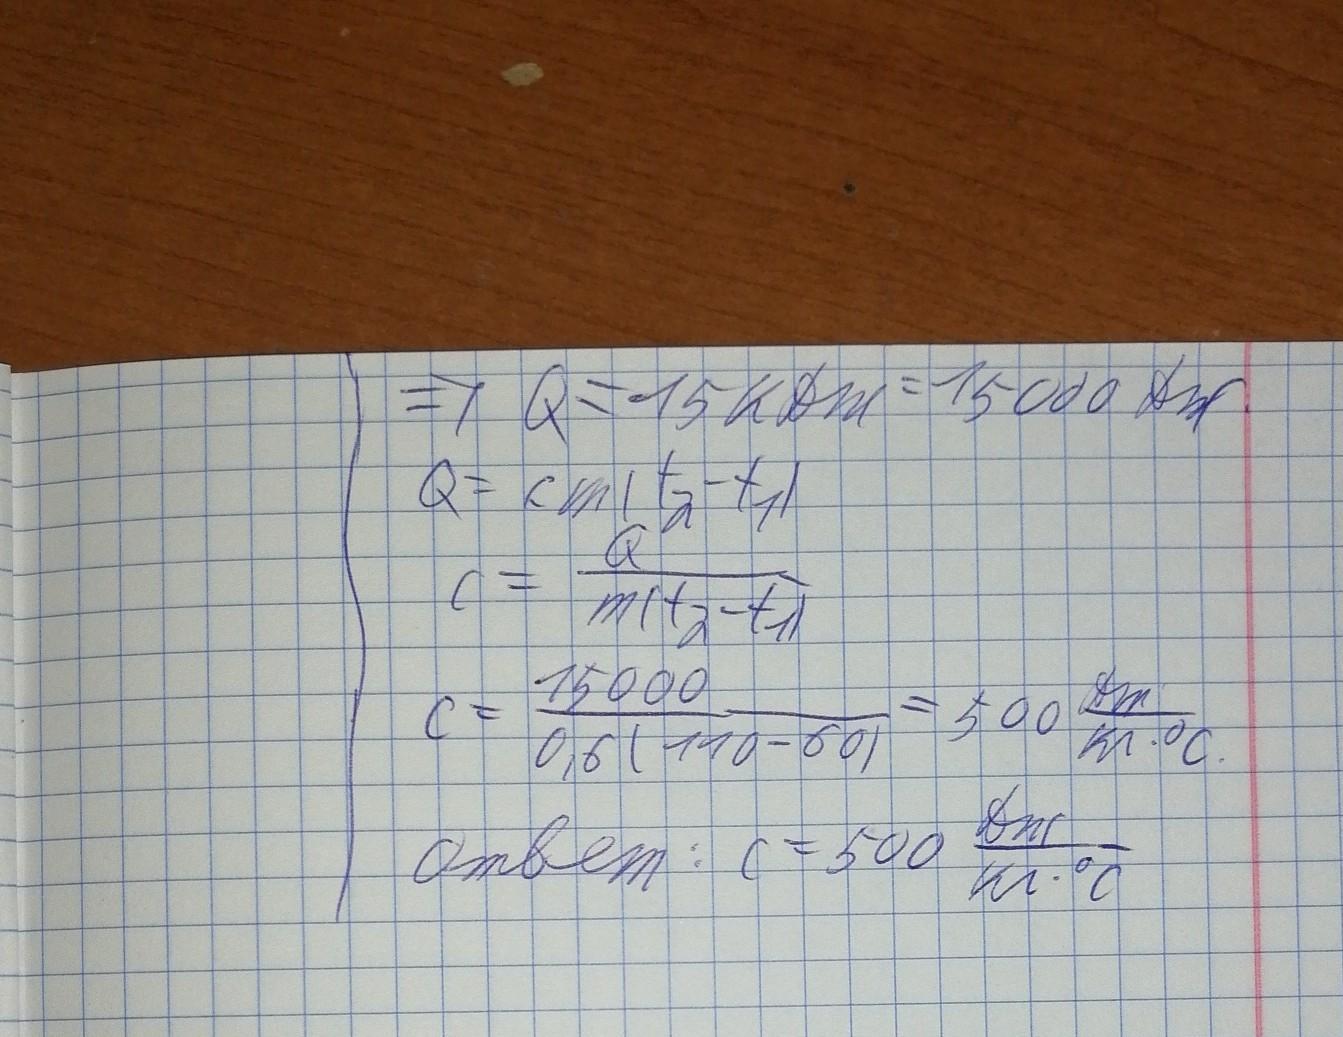 => Q = 15 кДж = 15000 Дж
Q = cm(t₂-t₁)
c = Q / m(t₂-t₁)
c = 15000 / 0,6(110-60) = 500 Дж / кг·°C.
Ответ: c = 500 Дж / кг·°C